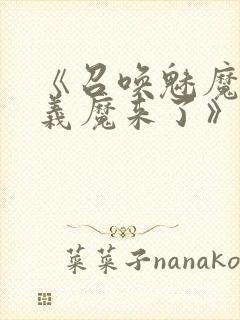 《召唤魅魔
义魔来了》
菜菜子nanako